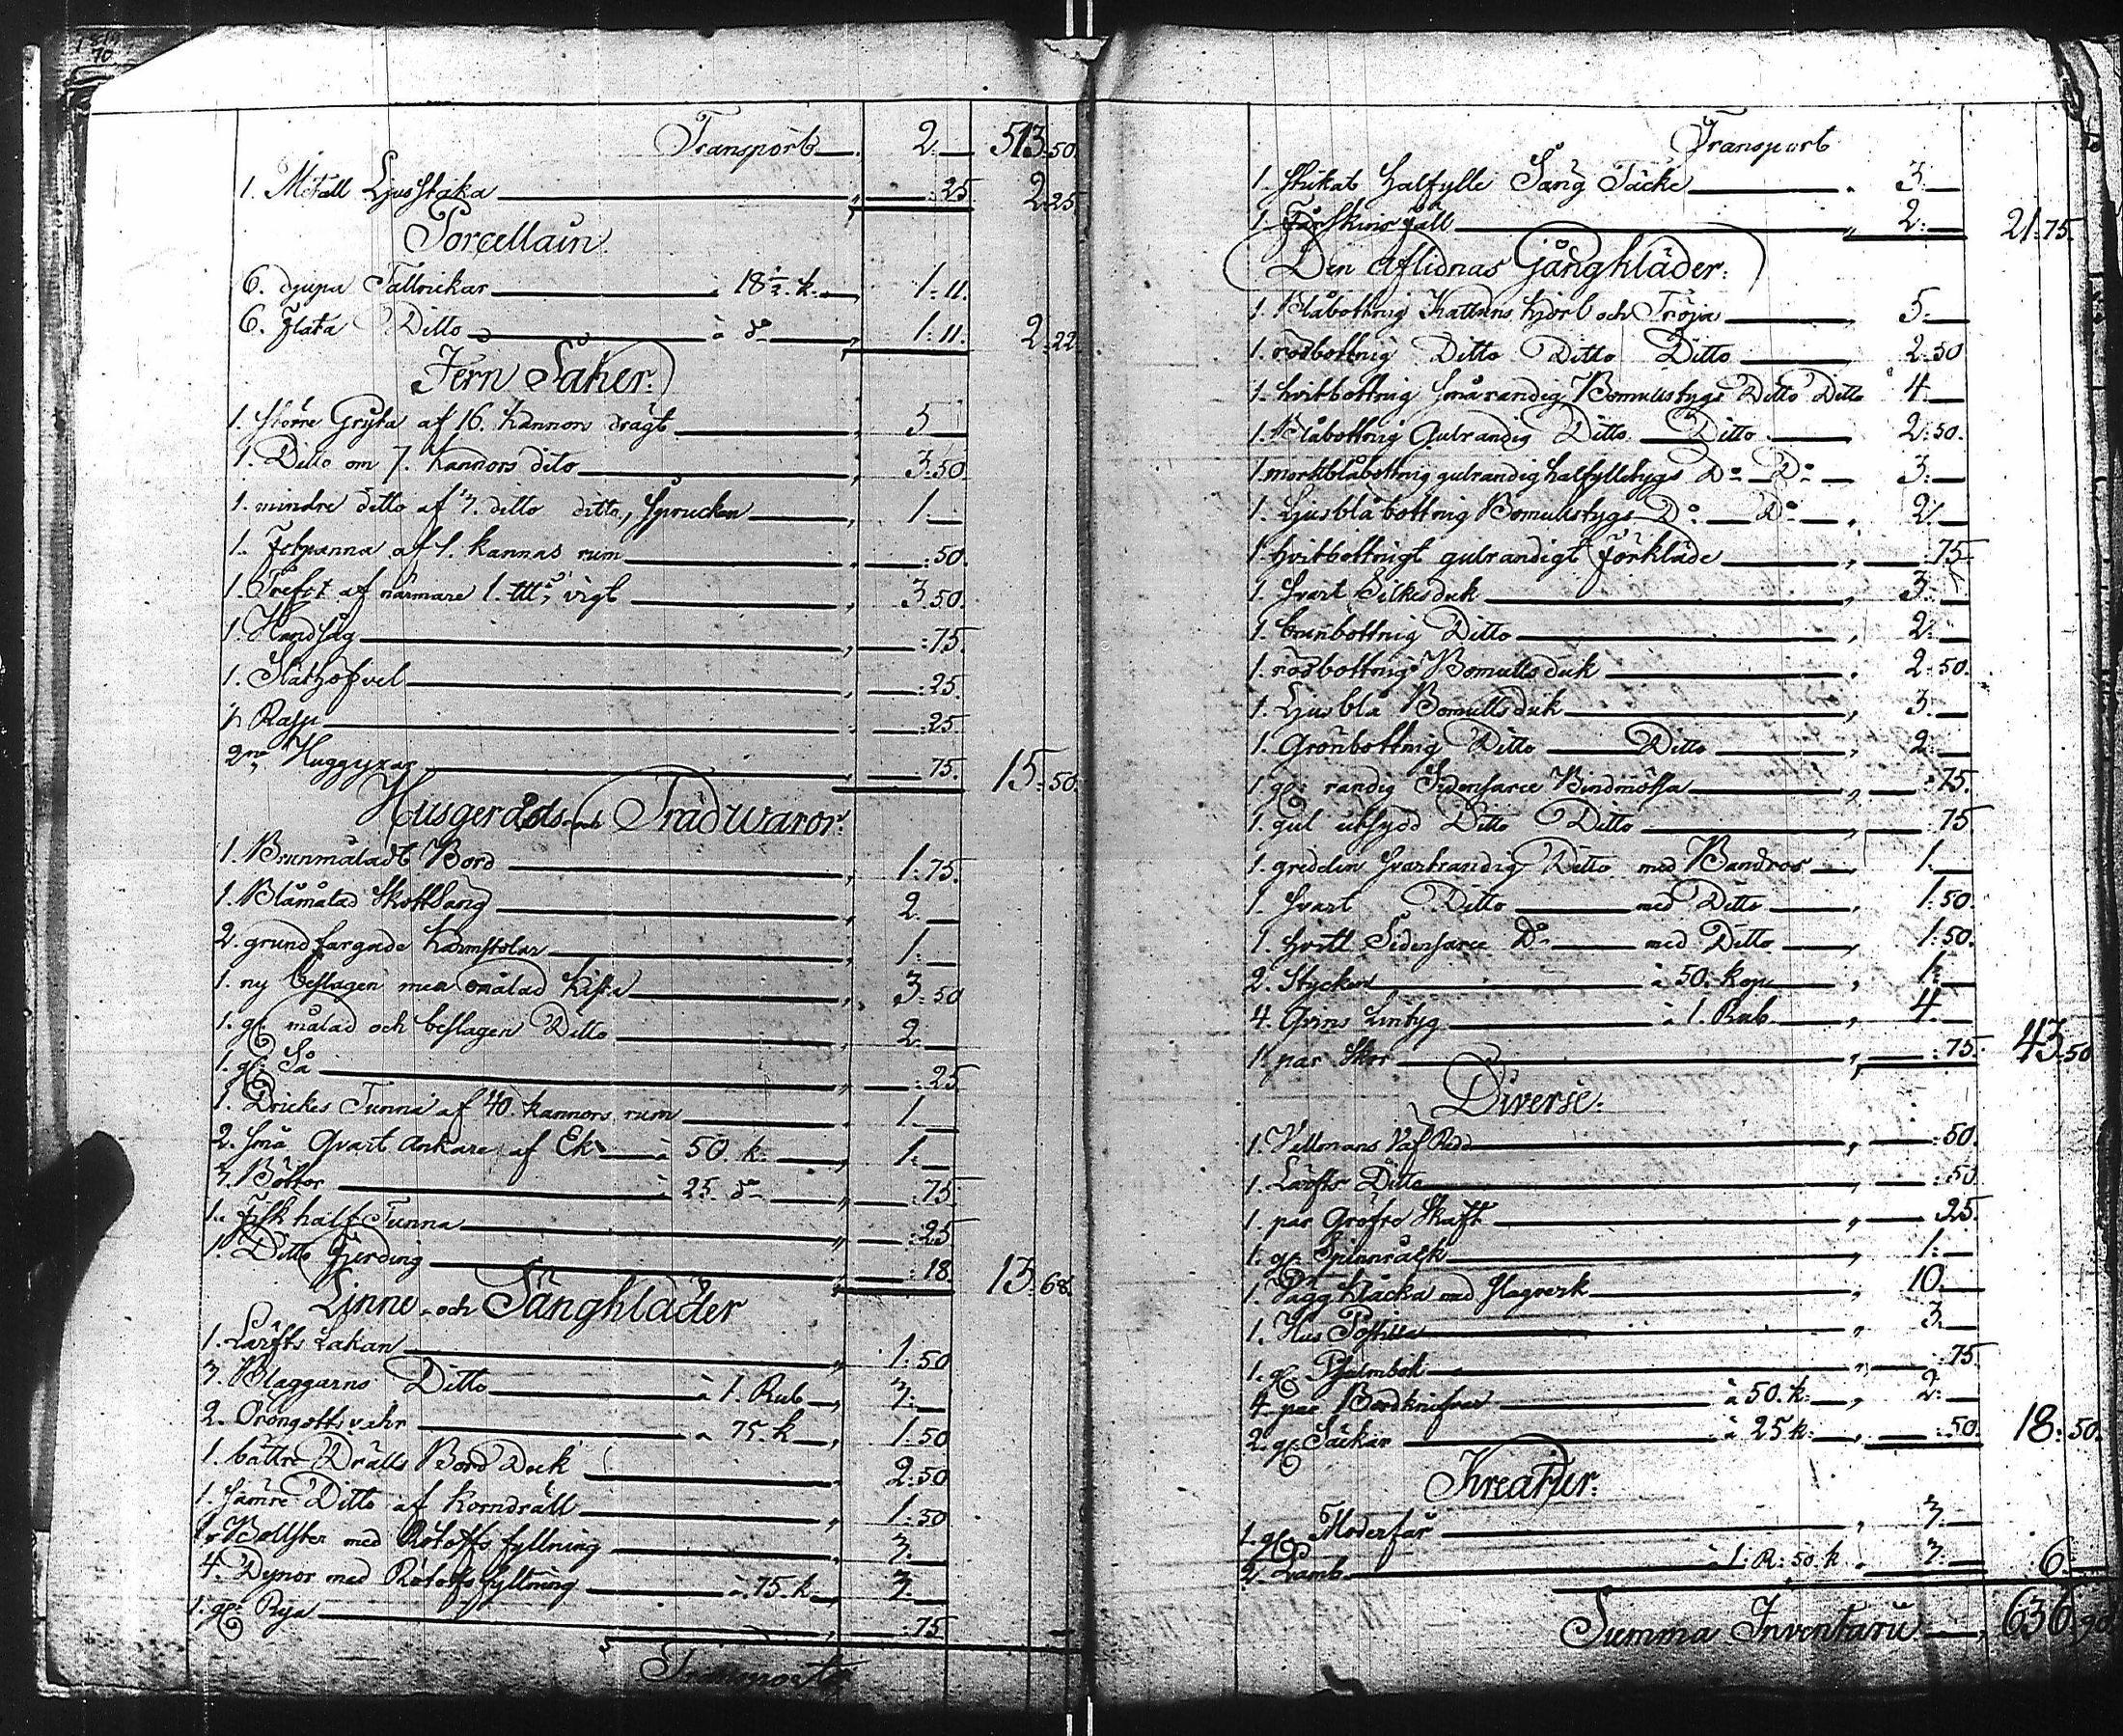 Transport 2.— 513.50.
1. Metall Ljusstaka — „ — :25. 2.25
Porcellain.
6. djupa Tallrickar — à 18½ k. — „ 1:11.
6. flata Ditto — à do — „ 1:11. 2.22
Jern Saker:
1. större Gryta af 16. kannors drägt — „ 5 —
1. Ditto om 7. kannors dito — „ 3:50
1. mindre ditto af 3. ditto ditto, sprucken — „ 1:—
1. Fotpanna af 1. kannas rum — „ — :50.
1. Trefot af närmare 1. vigt — „ 3.50.
1. Handsåg — „ — :75.
1. Släthöfvel — „ — :25.
1. Rasp — „ — :25.
2ne Huggyxar — „ — 75. 15:50.
Husgeråds och Trädwaror:
1. Brunmåladt Bord — „ 1:75.
1. Blåmålad Skottsäng — „ 2.—
2. grundfärgade Karmstolar — „ 1:—
1. ny beslagen men omålad Kista — „ 3:50
1. gl: målad och beslagen Ditto — „ 2.—
1. gl: Så — „ — :25
1. Drickes Tunna af 40 kannors rum — „ 1.—
2. små Qvart Ankare af Ek — à 50. k: — „ 1:—
3. Böttor — à 25. do — „ — :75.
1. Fisk half Tunna — „ — :25
1. Ditto Fjerding — „ — :18. 13:68.
Linne och Sängkläder
1. Lärfts Lakan — „ 1:50
3. Blaggarns Ditto — à 1. Rub — „ 3:—
2. Örongotts vahr — à 75. k — „ 1:50
1. bättre Drälls Bord Duk — „ 2:50
1. sämre Ditto af Korndräll — „ 1:50
1. Bollster med Rötoffs fyllning — „ 3:—
4. Dynor med Rötoffs fyllning — à 75. k — „ 3.—
1. gl: Rya — „ — :75 —
Transporte
Transport
1. stukat halfylle Säng Täcke — „ 3:—
1. Fårskins fäll — „ 2:— 21:75.
Den Aflidnas Gångkläder:
1. Blåbottnig Kattuns kjortl och Tröja — „ 5.—
1. rödbottnig Ditto Ditto Ditto — 2:50
1. hvitbottnig smårandig Bomullstygs Ditto Ditto 4.—
1. Blåbottnig Gulrandig Ditto — Ditto — 2:50.
1. mörkblåbottnig gulrandig halfylletygs Do — Do — 3:—
1. Ljusblåbottnig Bomullstygs Do — Do — „ 2:—
1. hvitbottnigt gulrandigt Förkläde — „ — :75
1. svart Silkesduk — „ 3:—
1. brunbottnig Ditto — „ 2:—
1. rödbottnig Bomullsduk — „ 2:50.
1. Ljusblå Bomullsduk — „ 3.—
1. Grönbottnig Ditto — Ditto — „ 2.—
1. gl: randig Sidensarce Bindmössa — „ — :75.
1. gul utsydd Ditto Ditto — „ — :75
1. gredelin svartrandig Ditto med Bandros — „ 1.—
1. svart Ditto — med Ditto — „ 1:50.
1. hvitt Sidensarce Do — med Ditto — „ 1:50.
2. Stycken — à 50. kop — „ 1:—
4. Linntyg — à 1. Rub — „ 4.—
1. par Skor — „ — :75. 43.50
Diverse:
1. Vallmans Väf Redd — „ — :50.
1. Lärfts Ditto — „ — :50
1. par Gröfre Skaft — „ — 25.
1. gl: Spinnråck — „ 1:—
1. Vägg Klåcka med slagverk — „ 10.—
1. Hus Postilla — „ 3.—
1. gl: Psalmbok — „ — :75.
4. par Bordknifvar — à 50. k: — „ 2.—
2. gl: Säckar — à 25 k: — „ — :50. 18:50.
Kreatur:
1. gl: Moderfår — „ 3.—
2. Lamb — à 1. R: 50. k „ 3:— 6:—
Summa Inventarii — 636.90